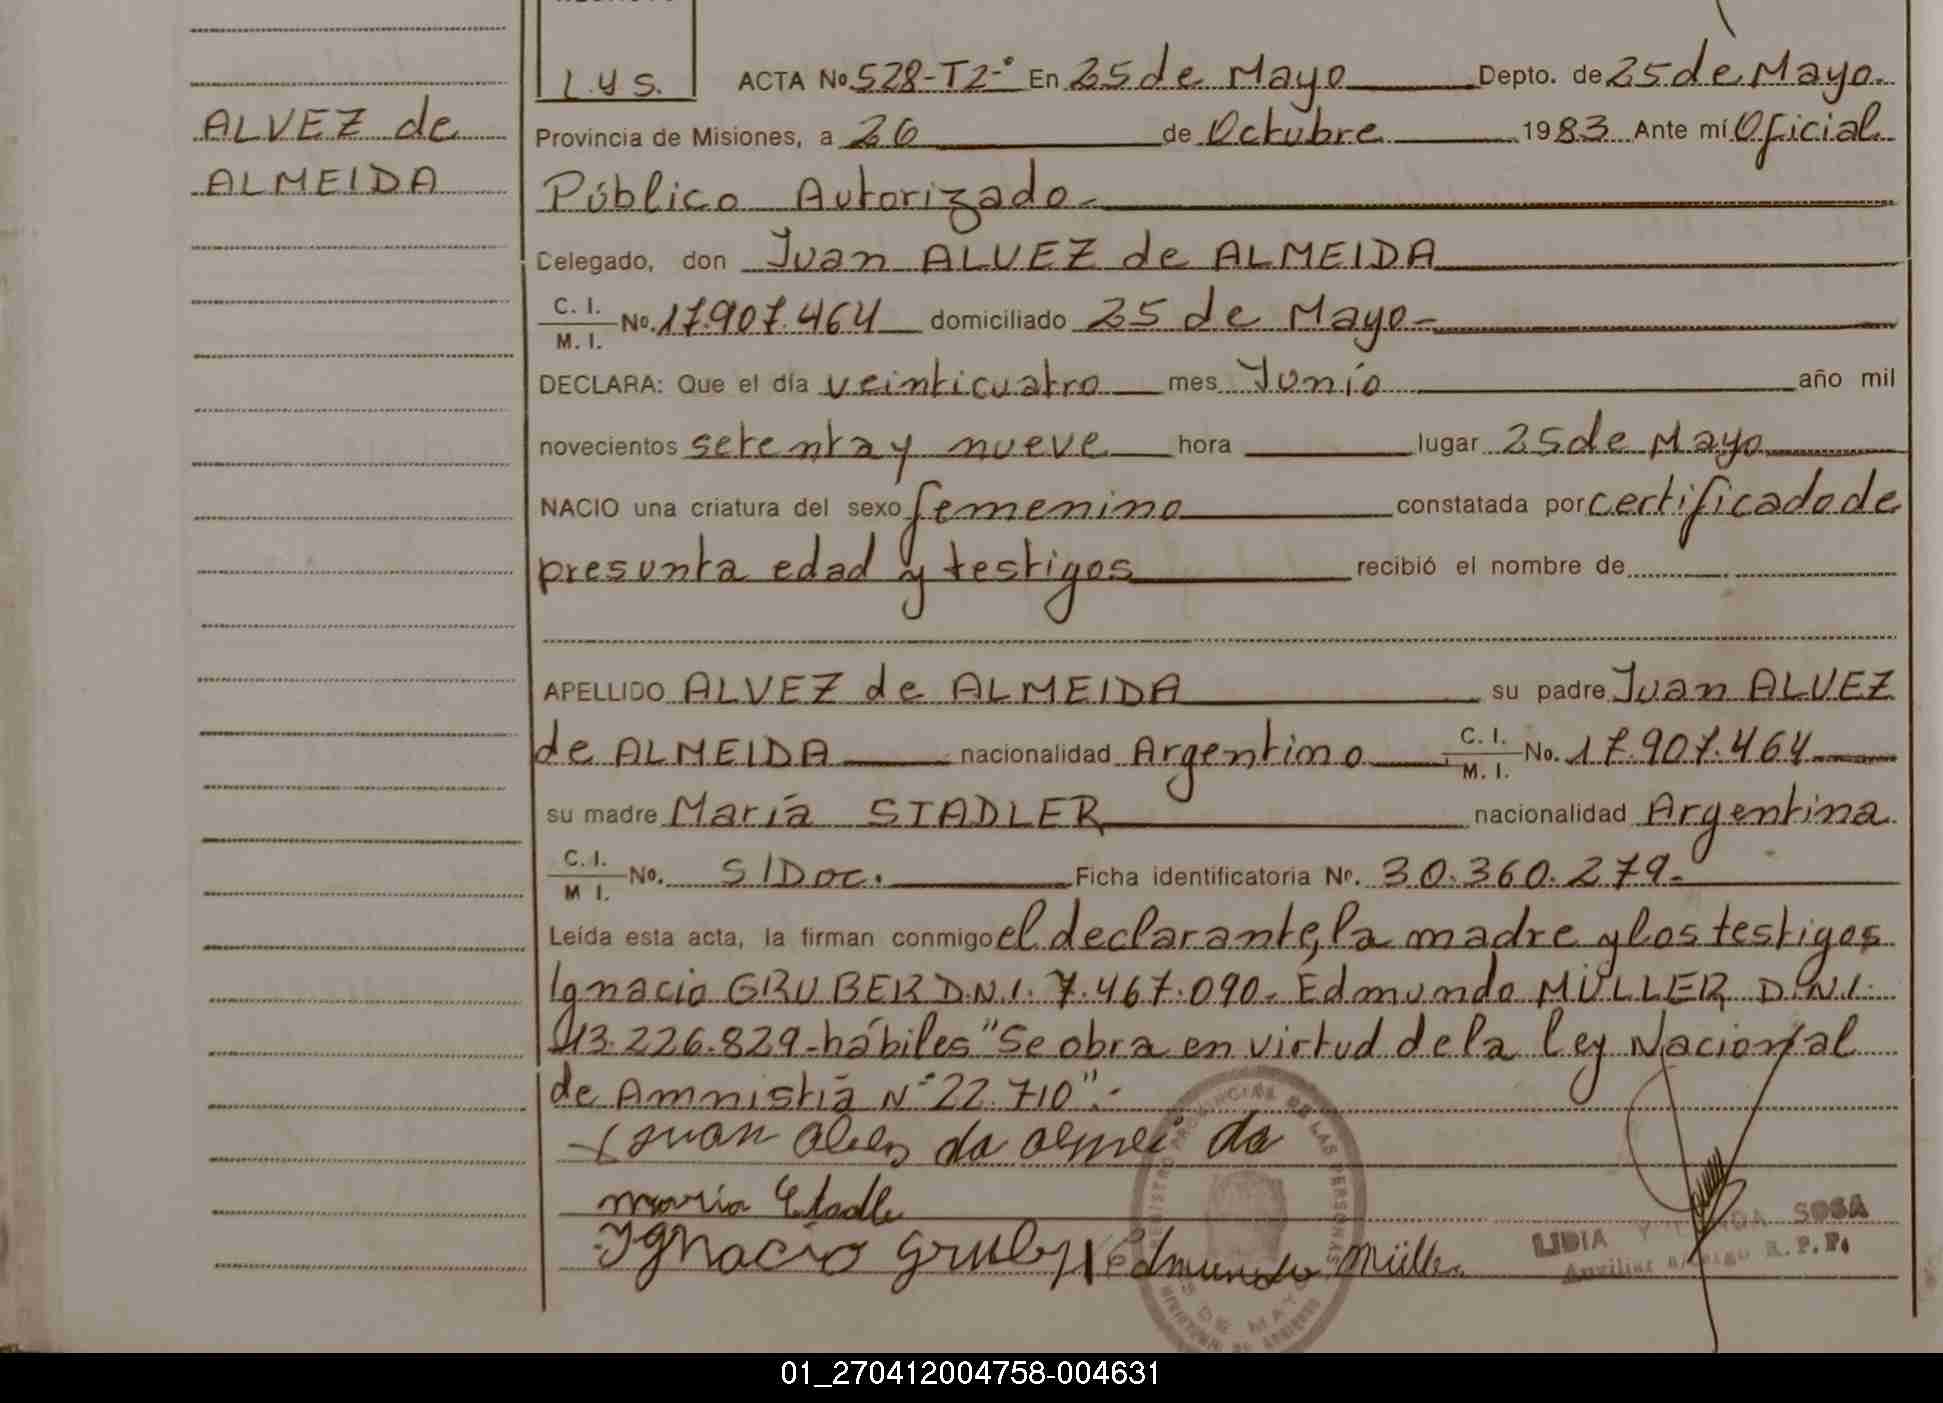 L.y S.
ACTA No 528-T2-° En 25 de Mayo Depto. de 25 de Mayo.
ALVEZ de
ALMEIDA
Provincia de Misiones, a 26 de Octubre 1983 Ante mí Oficial
Público Autorizado.
Celegado, don Juan ALVEZ de ALMEIDA
C. I. M. I. No. 17.907.464 domiciliado 25 de Mayo-
DECLARA: Que el día veinticuatro mes Junio año mil
novecientos setenta y nueve hora lugar 25 de Mayo
NACIO una criatura del sexo femenino constatada por certificado de
presunta edad y testigos recibió el nombre de
APELLIDO ALVEZ de ALMEIDA su padre Juan ALVEZ
de ALMEIDA nacionalidad Argentino C. I. M. I. No. 17.907.464
su madre María STADLER nacionalidad Argentina
C. I. M I. No. S/Doc. Ficha identificatoria Nº. 30.360.279.
Leída esta acta, la firman conmigo el declarante, la madre y los testigos
Ignacio GRUBER D.N.I. 7.467.090. Edmundo MÜLLER D.N.I.
13.226.829-hábiles "Se obra en virtud de la ley Nacional
de Amnistía N° 22.710".-
Juan da almei da
maría
Ignacio Edmundo Müller
REGISTRO PROVINCIAL DE LAS PERSONAS
25 DE MAYO
LIDIA SOSA
Auxiliar R. P. P.
01_270412004758-004631